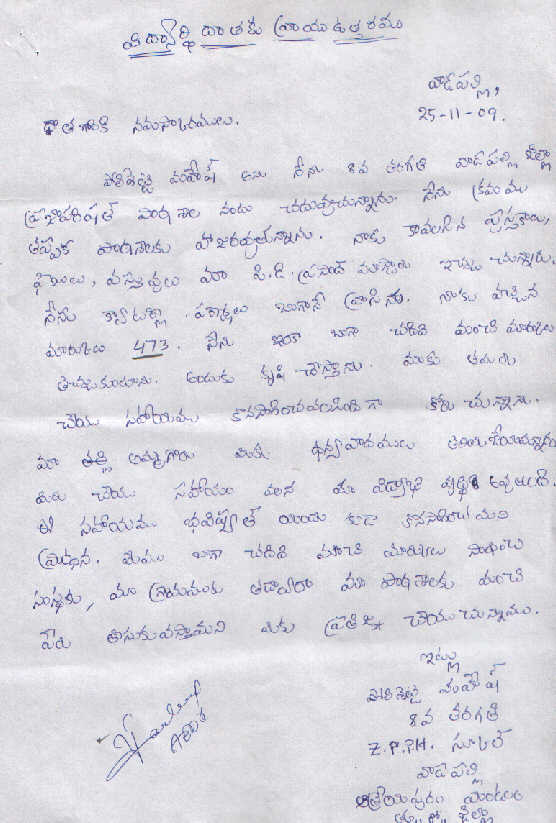 విద్యార్థి దాతకు వ్రాయు ఉత్తరము
వాడపల్లి,
25-11-09.
దాత గారికి నమస్కారములు.
పోలిశెట్టి మహేష్ అను నేను 8వ తరగతి వాడపల్లి జిల్లా
ప్రజాపరిషత్ పాఠశాల నందు చదువుచున్నాను. నేను క్రమము
తప్పక పాఠశాలకు హాజరవుతున్నాను. నాకు కావలసిన పుస్తకాలు,
ఫైయిలు, వస్తువులు మా పి.డి. ప్రసాద్ మాస్టారు ఇచ్చు చున్నారు.
నేను క్వాటర్లీ పరీక్షలు బాగానే వ్రాసేను. నాకు వచ్చిన
మార్కులు 473. నేను ఇంకా బాగా చదివి మంచి మార్కులు
తెచ్చుకుంటాను. అందుకు కృషి చేస్తాను. మాకు తమరు
చేయు సహాయము కొనసాగించవలసిందిగా కోరు చున్నాను.
మా తల్లి అమ్మగారు మీకు ధన్యవాదములు తెలియజేయుచున్నారు
మీరు చేయు సహాయం వలన మా విద్యాభి వృద్ధి అవుతుంది.
ఈ సహాయము భవిష్యత్ యందు కుడా కొనసాగించమని
ప్రార్థన. మేము బాగా చదివి మంచి మార్కులు సాధించి
సంస్థకు, మా గ్రామముకు తద్వారా మా పాఠశాలకు మంచి
పేరు తీసుకువస్తామని మీకు ప్రతిజ్ఞ చేయుచున్నాము.
ఇట్లు
పోలిశెట్టి మహేష్
8వ తరగతి
Z.P.P.H. స్కూల్
వాడపల్లి
ఆత్రేయపురం మండలం
తూ. గో. జిల్లా